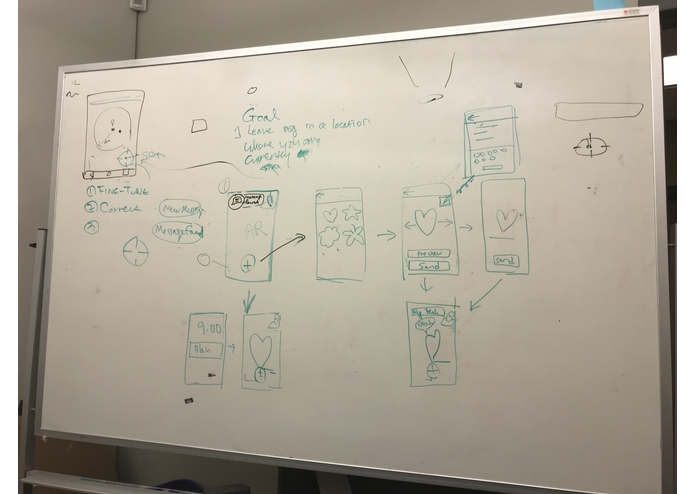 Goal
1 Leave msg in a location
where you are
currently
① FINE-TUNE
② Correct
③
New Message
Message Found
①
AR
+
Preview
Send
Send
9:00